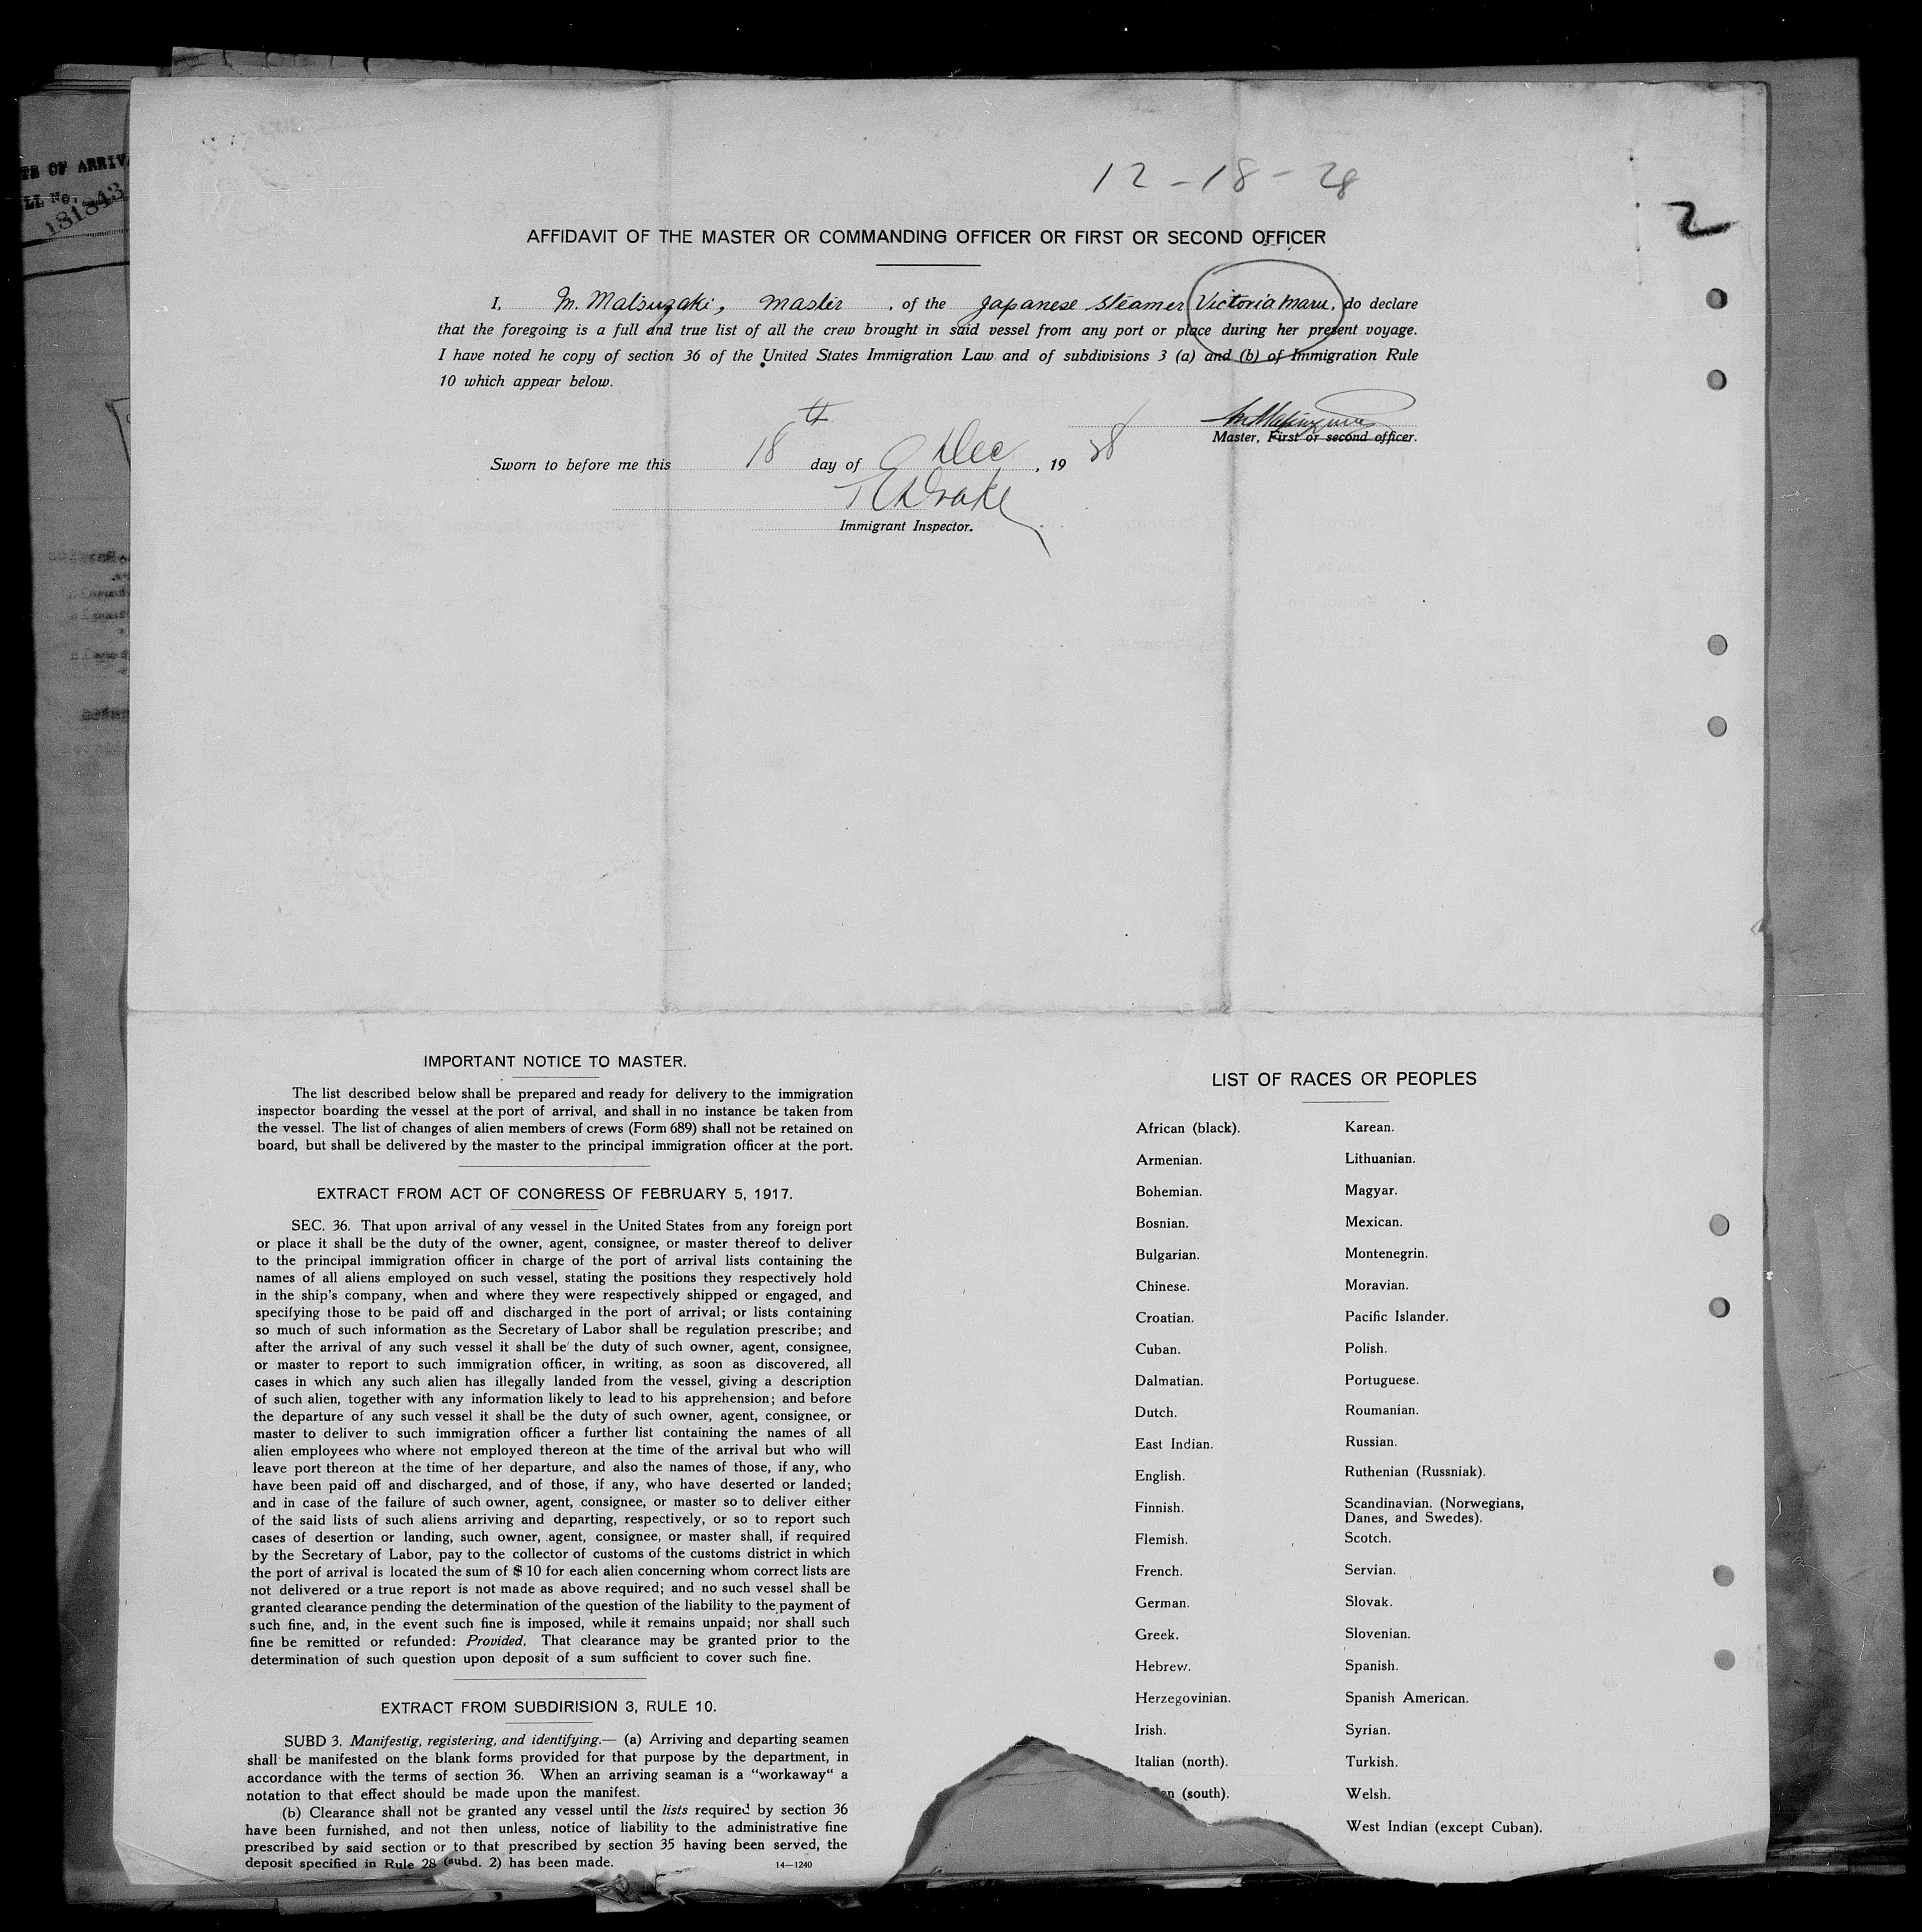 TE OF ARRIVA
LL No.
181843
12-18-28
2
AFFIDAVIT OF THE MASTER OR COMMANDING OFFICER OR FIRST OR SECOND OFFICER
I, M. Matsuzaki, Master, of the Japanese Steamer Victoria Maru, do declare
that the foregoing is a full and true list of all the crew brought in said vessel from any port or place during her present voyage.
I have noted he copy of section 36 of the United States Immigration Law and of subdivisions 3 (a) and (b) of Immigration Rule
10 which appear below.
Master, First or second officer.
Sworn to before me this 18th day of Dec, 1928
T E Drake
Immigrant Inspector.
IMPORTANT NOTICE TO MASTER.
The list described below shall be prepared and ready for delivery to the immigration
inspector boarding the vessel at the port of arrival, and shall in no instance be taken from
the vessel. The list of changes of alien members of crews (Form 689) shall not be retained on
board, but shall be delivered by the master to the principal immigration officer at the port.
EXTRACT FROM ACT OF CONGRESS OF FEBRUARY 5, 1917.
SEC. 36. That upon arrival of any vessel in the United States from any foreign port
or place it shall be the duty of the owner, agent, consignee, or master thereof to deliver
to the principal immigration officer in charge of the port of arrival lists containing the
names of all aliens employed on such vessel, stating the positions they respectively hold
in the ship's company, when and where they were respectively shipped or engaged, and
specifying those to be paid off and discharged in the port of arrival; or lists containing
so much of such information as the Secretary of Labor shall be regulation prescribe; and
after the arrival of any such vessel it shall be the duty of such owner, agent, consignee,
or master to report to such immigration officer, in writing, as soon as discovered, all
cases in which any such alien has illegally landed from the vessel, giving a description
of such alien, together with any information likely to lead to his apprehension; and before
the departure of any such vessel it shall be the duty of such owner, agent, consignee, or
master to deliver to such immigration officer a further list containing the names of all
alien employees who where not employed thereon at the time of the arrival but who will
leave port thereon at the time of her departure, and also the names of those, if any, who
have been paid off and discharged, and of those, if any, who have deserted or landed;
and in case of the failure of such owner, agent, consignee, or master so to deliver either
of the said lists of such aliens arriving and departing, respectively, or so to report such
cases of desertion or landing, such owner, agent, consignee, or master shall, if required
by the Secretary of Labor, pay to the collector of customs of the customs district in which
the port of arrival is located the sum of $ 10 for each alien concerning whom correct lists are
not delivered or a true report is not made as above required; and no such vessel shall be
granted clearance pending the determination of the question of the liability to the payment of
such fine, and, in the event such fine is imposed, while it remains unpaid; nor shall such
fine be remitted or refunded: Provided. That clearance may be granted prior to the
determination of such question upon deposit of a sum sufficient to cover such fine.
EXTRACT FROM SUBDIRISION 3, RULE 10.
SUBD 3. Manifestig, registering, and identifying.— (a) Arriving and departing seamen
shall be manifested on the blank forms provided for that purpose by the department, in
accordance with the terms of section 36. When an arriving seaman is a "workaway“ a
notation to that effect should be made upon the manifest.
(b) Clearance shall not be granted any vessel until the lists required by section 36
have been furnished, and not then unless, notice of liability to the administrative fine
prescribed by said section or to that prescribed by section 35 having been served, the
deposit specified in Rule 28 (subd. 2) has been made.
14—1240
LIST OF RACES OR PEOPLES
African (black).
Armenian.
Bohemian.
Bosnian.
Bulgarian.
Chinese.
Croatian.
Cuban.
Dalmatian.
Dutch.
East Indian.
English.
Finnish.
Flemish.
French.
German.
Greek.
Hebrew.
Herzegovinian.
Irish.
Italian (north).
n (south).
Karean.
Lithuanian.
Magyar.
Mexican.
Montenegrin.
Moravian.
Pacific Islander.
Polish.
Portuguese.
Roumanian.
Russian.
Ruthenian (Russniak).
Scandinavian. (Norwegians,
Danes, and Swedes).
Scotch.
Servian.
Slovak.
Slovenian.
Spanish.
Spanish American.
Syrian.
Turkish.
Welsh.
West Indian (except Cuban).